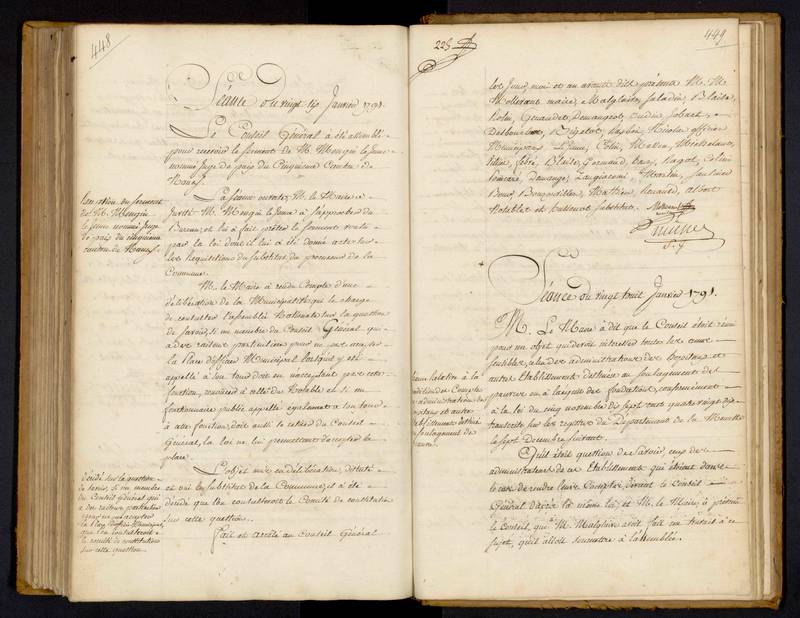 448
Séance du vingt six Janvier 1791.
Le Conseil Général a été assemblé
pour recevoir le serment de M. Mengin le Jeune
nommé Juge de paix du Cinquieme Canton de
Nancy.
Prestation du serment
de M. Mengin
le Jeune nommé Juge
de paix du cinquieme
canton de Nancy.
La séance ouverte, M. le Maire a
invité M. Mengin le Jeune à s'approcher du
Bureau, et lui a fait prêter le serment voulu
par la loi dont il lui a été donné acte sur
les Requisitions du Substitut du procureur de la
Commune.
M. le Maire a rendu Compte d'une
déliberation de la Municipalité qui le charge
de consulter l'assemblée Nationale sur la question
de savoir, si un membre du Conseil Général qui
a des raisons particulieres pour ne pas accepter
la place d'officier Municipal lorsqu'il y est
appellé à son tour doit en n'acceptant pas cette
fonction, renoncer à celle de Notable et si un
fonctionnaire public appellé également à son tour
à cette fonction, doit aussi se retirer du Conseil
Général, la loi ne lui permettant d'accepter la
place.
Décidé sur la question
de savoir, si un membre
du Conseil Général qui
a des raisons particulieres
pour ne pas accepter
la place d'officier Municipal,
que l'on consulteroit
le comité de constitution
sur cette question.
L'objet mis en déliberation, discuté
et oui le substitut de la Commune, il a été
décidé que l'on consulteroit le Comité de constitution
sur cette question.
Fait et arrêté au Conseil Général
225
449
les Jour, mois et an avant dits présents M. M.
Mollevaut maire, Malglaive, Saladin, Blaise,
Rolin, Genaudet, Demangeot,
Nicolas officiers
Municipaux Colin,
Febvé, Blaise, Ragot, Colin
Zangiacomi, Martin, Saulnier
Mathieu, Renaud,
Notables et substitut.
Séance du vingt huit Janvier 1791.
M. Le Maire a dit que le Conseil étoit réuni
pour un objet qui devoit intéresser toutes les ames
sensibles, celui des administrations des hopitaux et
autres Etablissements destinés au soulagement des
pauvres en ce conformément
à la loi du cinq novembre de sept cent quatre vingt dix
transcrite sur les registres du Département de la Meurthe
le sept Decembre suivant.
relative à la
des Comptes
administrations des
hopitaux et autres
Etablissements destinés
au soulagement des
pauvres.
Qu'il étoit question de savoir, ceux des
administrateurs de ces Etablissements qui étoient dans
le cas de rendre leurs Comptes, devant le Conseil
Général d'après la même loi, et M. le Maire, a prévenu
le Conseil, que M. Malglaive avoit fait un travail à ce
sujet, qu'il alloit soumettre à l'assemblée.